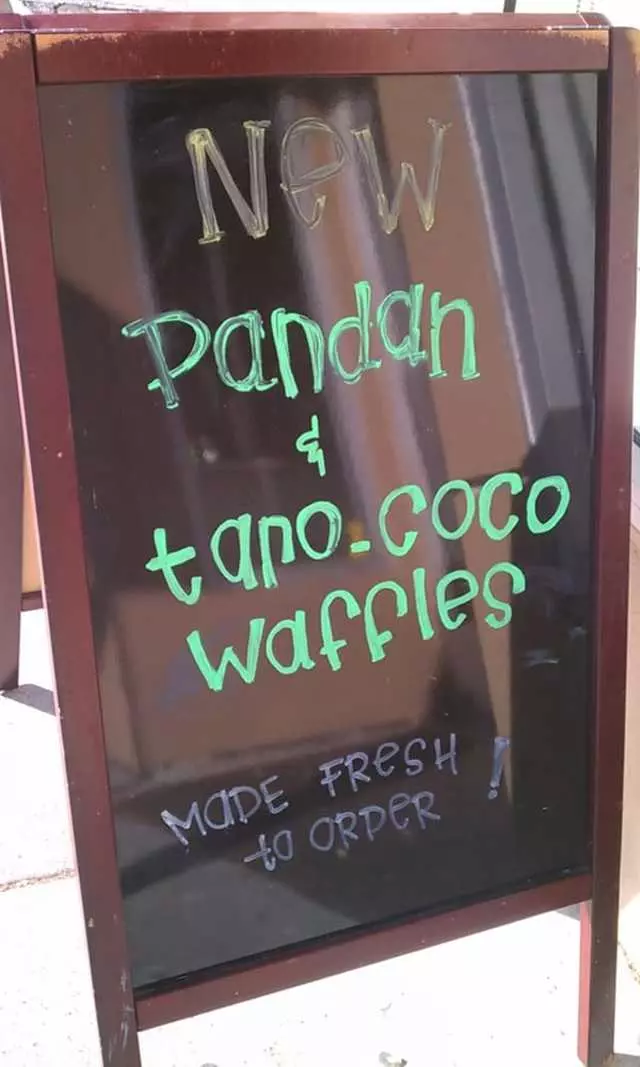 New
Pandan
&
tano-coco
waffles
MADE FRESH
to ORDER!